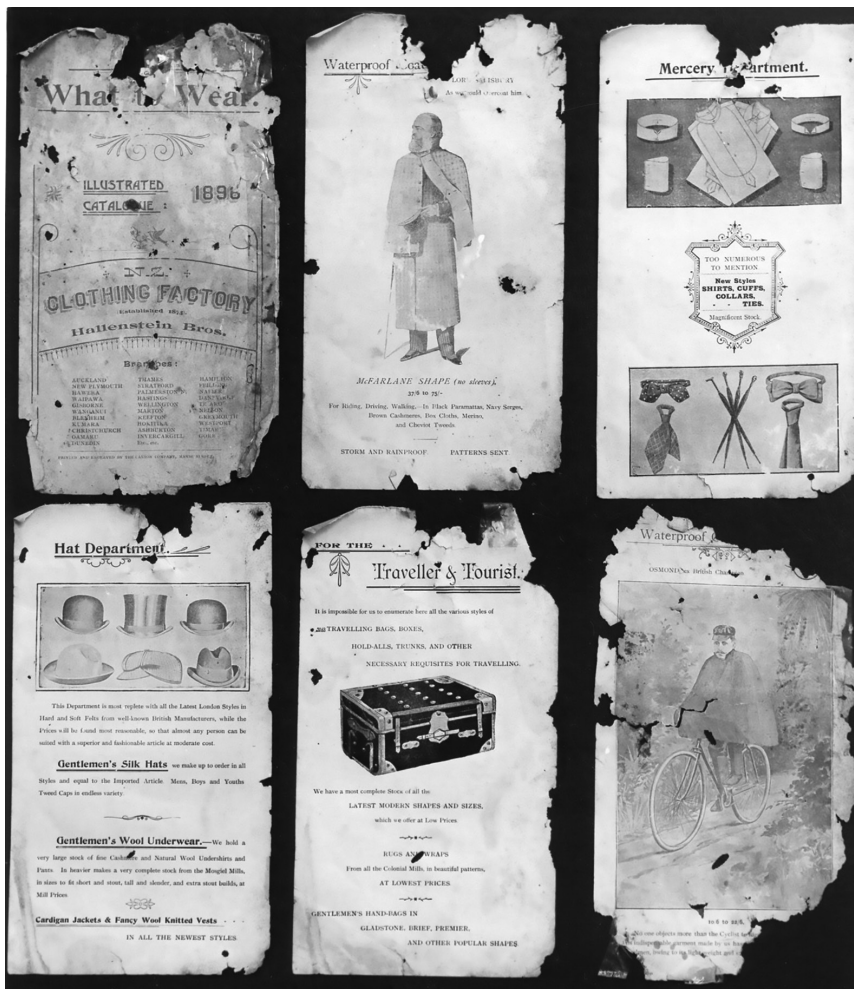 What to Wear.
ILLUSTRATED
CATALOGUE :
1896
N.Z.
CLOTHING FACTORY
Established 1873.
Hallenstein Bros.
Branches :
AUCKLAND THAMES HAMILTON
NEW PLYMOUTH STRATFORD
HAWERA PALMERSTON N. NAPIER
WAIPAWA HASTINGS
GISBORNE WELLINGTON
WANGANUI MARTON NELSON
BLENHEIM REEFTON GREYMOUTH
KUMARA HOKITIKA WESTPORT
CHRISTCHURCH ASHBURTON
OAMARU INVERCARGILL GORE
DUNEDIN Etc., etc.
Waterproof Coa
As we would overcoat him
McFARLANE SHAPE (no sleeves),
37/6 to 75/-
For Riding, Driving, Walking.—In Black Paramattas, Navy Serges,
Brown Cashmeres, Box Cloths, Merino,
and Cheviot Tweeds.
STORM AND RAINPROOF. PATTERNS SENT
Mercery Department.
TOO NUMEROUS
TO MENTION
New Styles
SHIRTS, CUFFS,
COLLARS,
TIES.
Magnificent Stock.
Hat Department.
This Department is most replete with all the Latest London Styles in
Hard and Soft Felts from well-known British Manufacturers, while the
Prices will be found most reasonable, so that almost any person can be
suited with a superior and fashionable article at moderate cost.
Gentlemen's Silk Hats we make up to order in all
Styles and equal to the Imported Article. Mens, Boys and Youths
Tweed Caps in endless variety.
Gentlemen's Wool Underwear.—We hold a
very large stock of fine Cashmere and Natural Wool Undershirts and
Pants. In heavier makes a very complete stock from the Mosgiel Mills,
in sizes to fit short and stout, tall and slender, and extra stout builds, at
Mill Prices
Cardigan Jackets & Fancy Wool Knitted Vests - - -
IN ALL THE NEWEST STYLES
FOR THE . .
Traveller & Tourist.
It is impossible for us to enumerate here all the various styles of
TRAVELLING BAGS, BOXES,
HOLD-ALLS, TRUNKS, AND OTHER
NECESSARY REQUISITES FOR TRAVELLING.
We have a most complete Stock of all the
LATEST MODERN SHAPES AND SIZES,
which we offer at Low Prices
RUGS AND WRAPS
From all the Colonial Mills, in beautiful patterns,
AT LOWEST PRICES.
GENTLEMEN'S HAND-BAGS IN
GLADSTONE, BRIEF, PREMIER,
AND OTHER POPULAR SHAPES
Waterproof
British
10/6 to 22/6.
No one objects more than the Cyclist to
indispensable garment made by us
owing to its light weight and